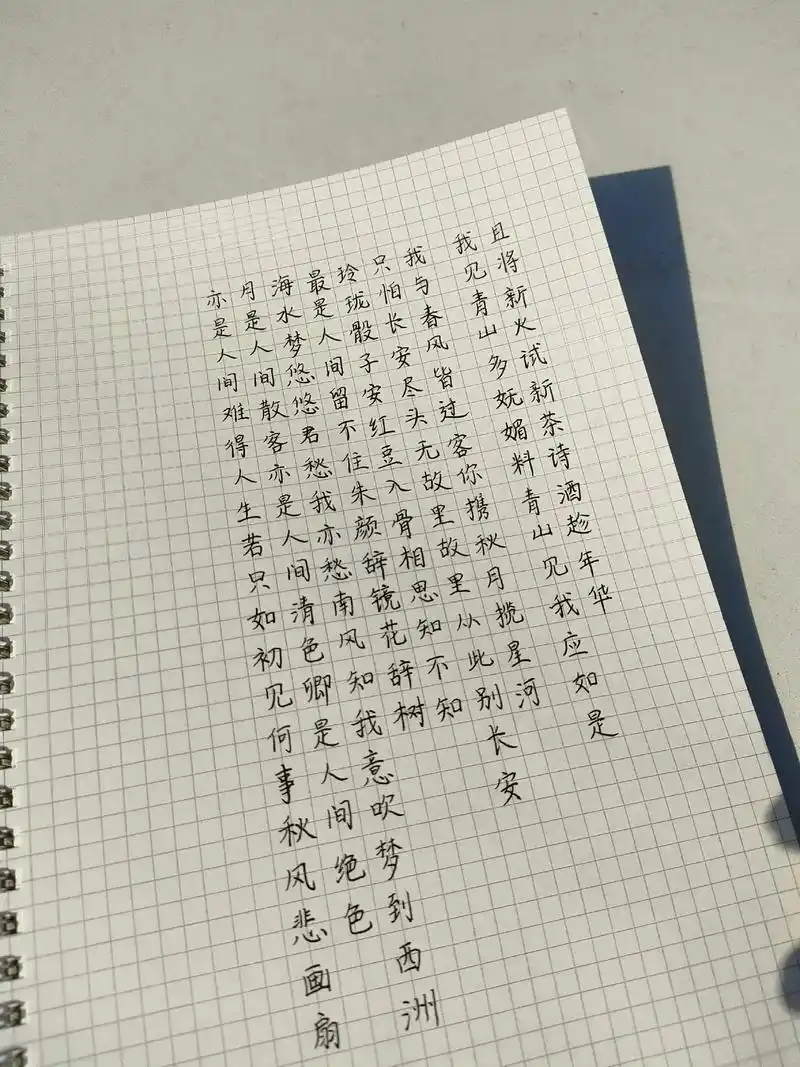 且将新火试新茶诗酒趁年华
我见青山多妩媚料青山见我应如是
我与春风皆过客你携秋月揽星河
只怕长安尽头无故里故里从此别长安
玲珑骰子安红豆入骨相思知不知
最是人间留不住朱颜辞镜花辞树
海水梦悠悠君愁我亦愁南风知我意吹梦到西洲
月是人间散客亦是人间清色卿是人间绝色
亦是人间难得人生若只如初见何事秋风悲画扇